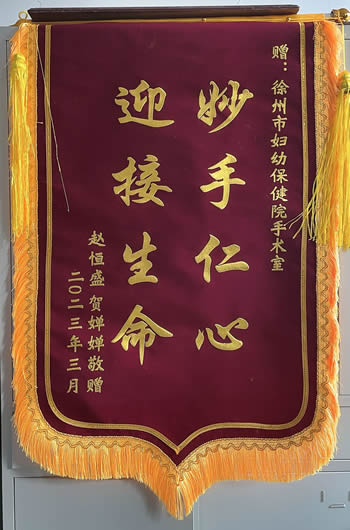 赠：徐州市妇幼保健院手术室
妙手仁心
迎接生命
赵恒盛 贺婵婵敬赠
二〇二三年三月